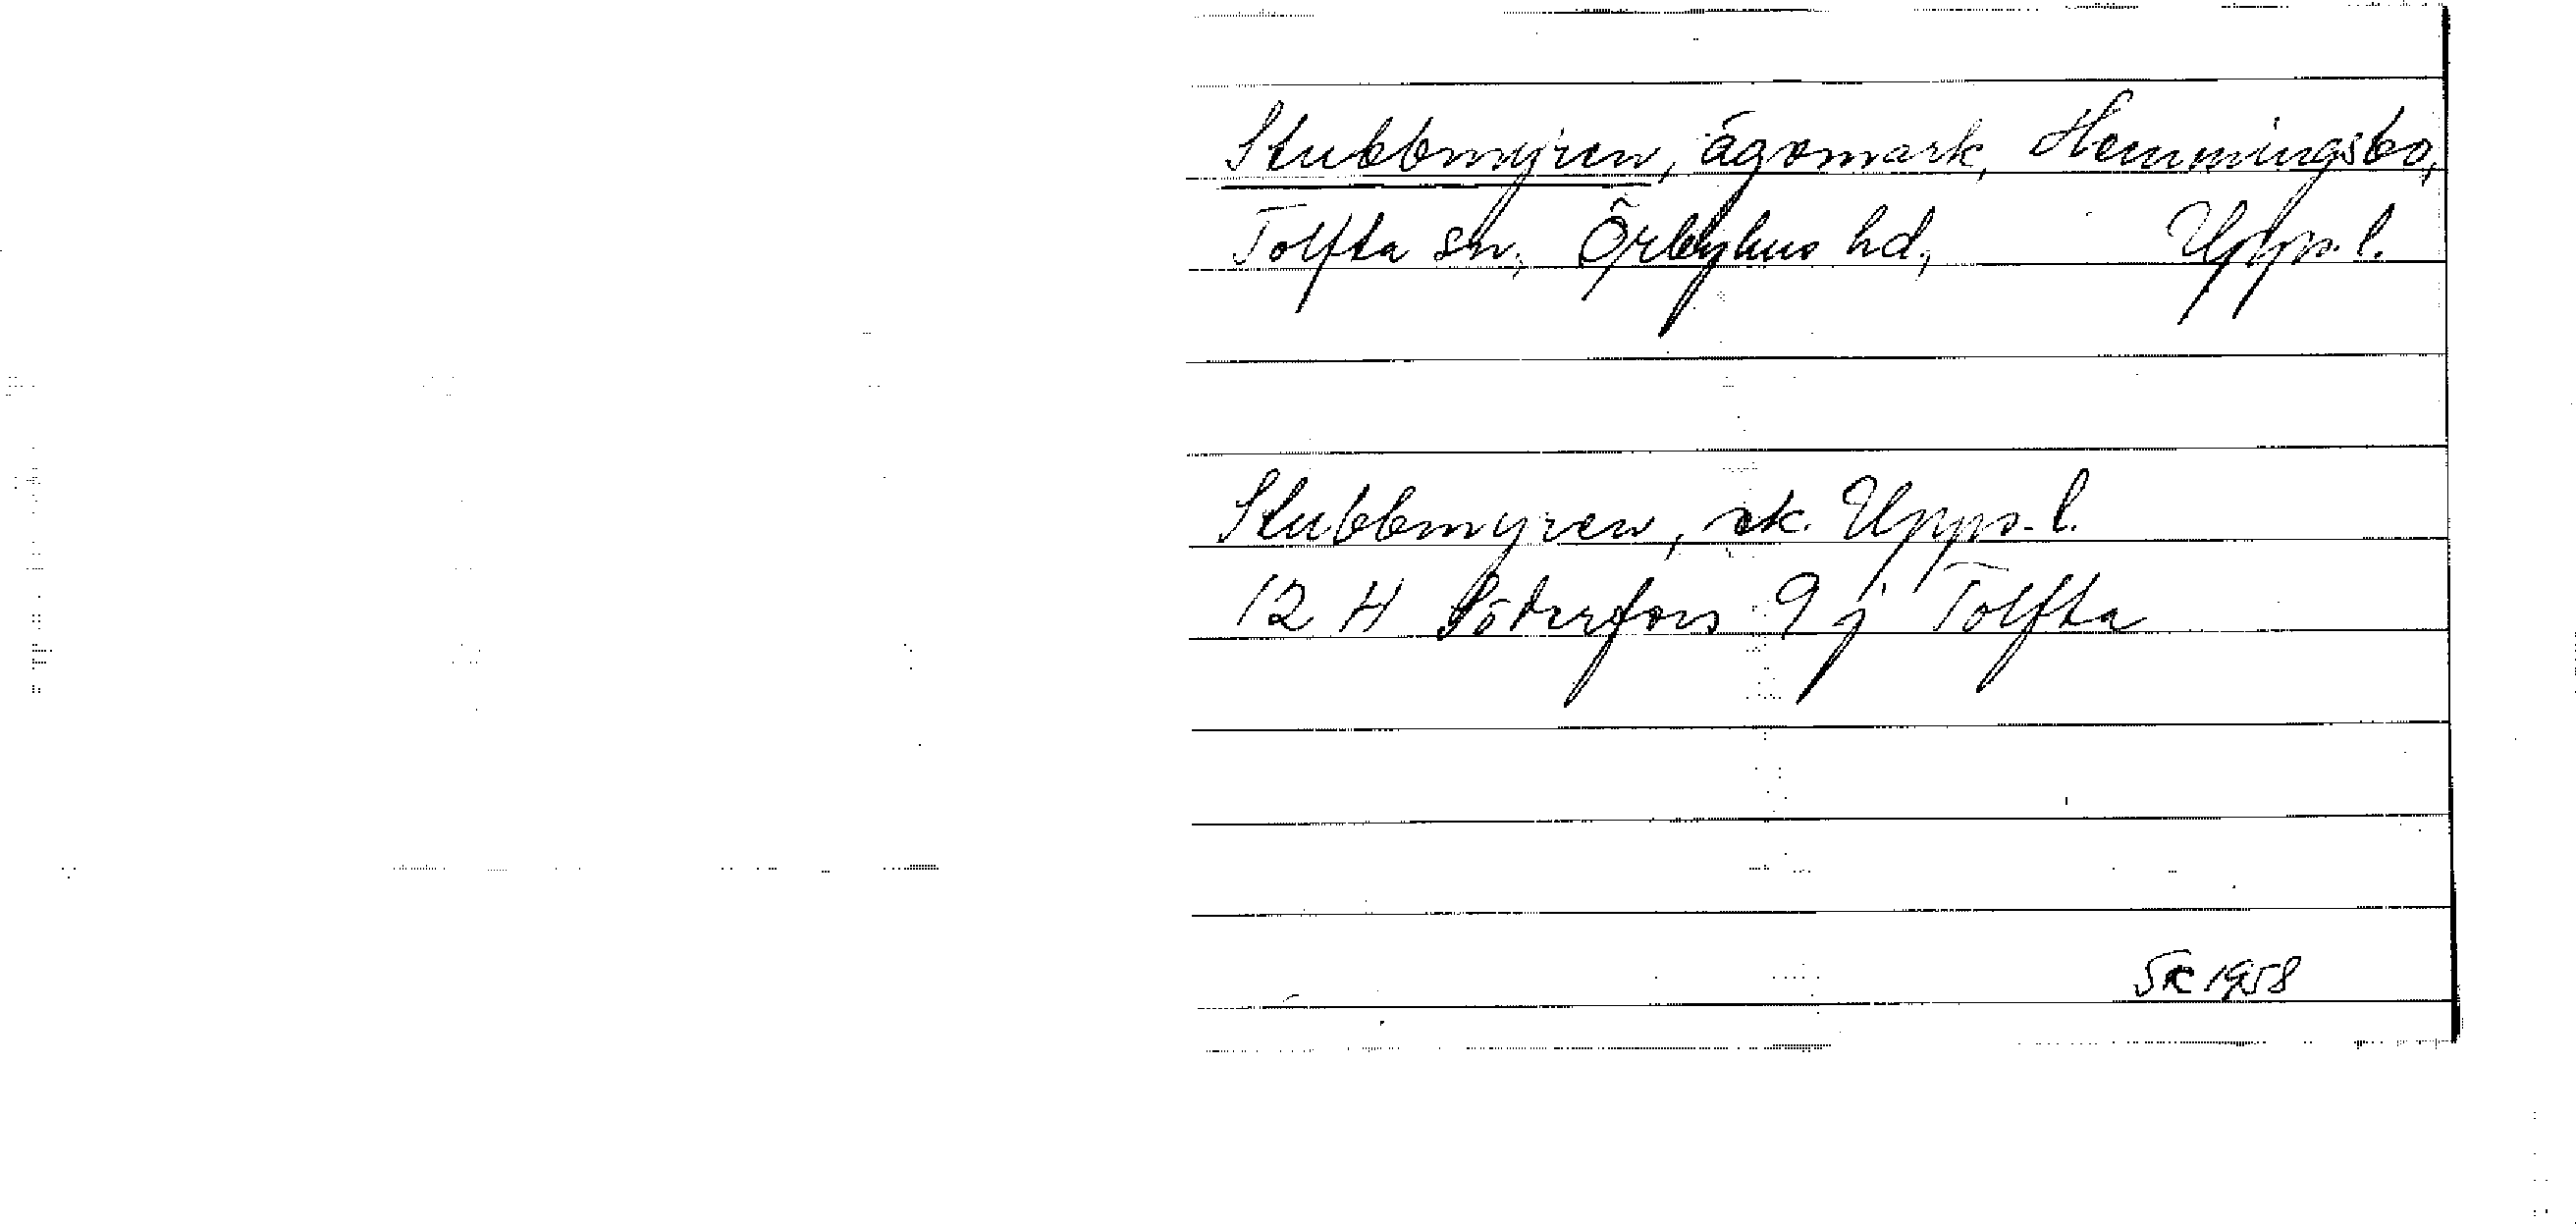 Stubbmyren, ägomark, Hemmingsbo,
Tolfta sn, Örbyhus hd, Upps. l.
Stubbmyren, ek. Upps. l.
12 H Söderfors 9 j Tolfta
SK 1958